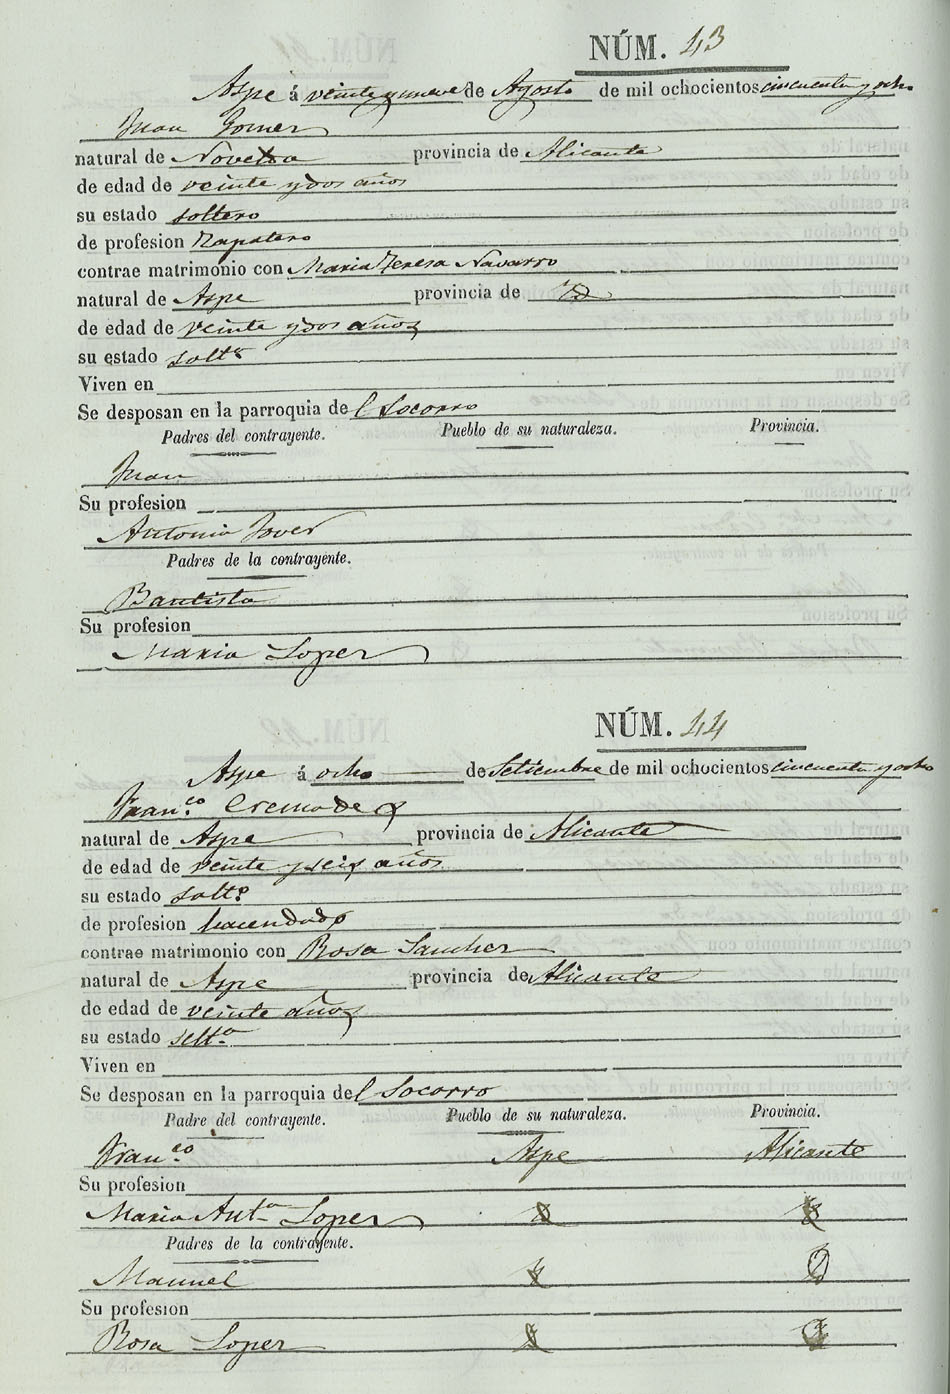 NÚM. 43
Aspe á veinte y nueve de Agosto de mil ochocientos cincuenta y ocho
Juan Gomez
natural de Novelda provincia de Alicante
de edad de veinte y dos años
su estado soltero
de profesion Zapatero
contrae matrimonio con Maria Teresa Navarro
natural de Aspe provincia de Id
de edad de veinte y dos años
su estado solt.ª
Viven en
Se desposan en la parroquia del Socorro
Padres del contrayente. Pueblo de su naturaleza. Provincia.
Juan
Su profesion
Antonia Jover
Padres de la contrayente.
Bautista
Su profesion
Maria Lopez
NÚM. 44
Aspe á ocho de Setiembre de mil ochocientos cincuenta y ocho
Fran.co Cremades
natural de Aspe provincia de Alicante
de edad de veinte y seis años
su estado solt.º
de profesion hacendado
contrae matrimonio con Rosa Sanchez
natural de Aspe provincia de Alicante
de edad de veinte años
su estado solt.ª
Viven en
Se desposan en la parroquia del Socorro
Padre del contrayente. Pueblo de su naturaleza. Provincia.
Fran.co Aspe Alicante
Su profesion
Maria Ant.ª Lopez
Padres de la contrayente.
Manuel
Su profesion
Rosa Lopez